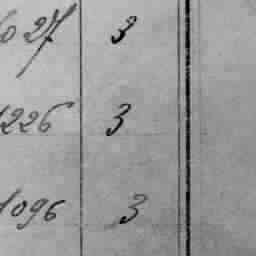 027 3
1226 3
1096 3